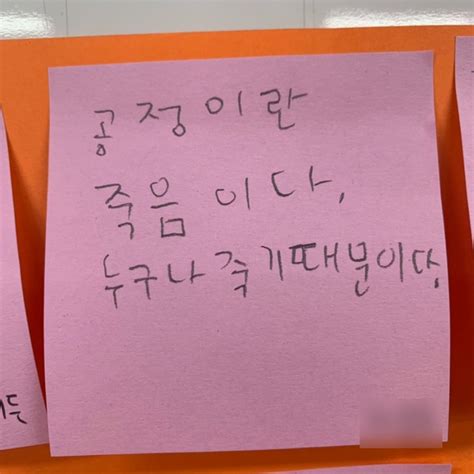 공정이란
죽음이다.
누구나 죽기때문이다.